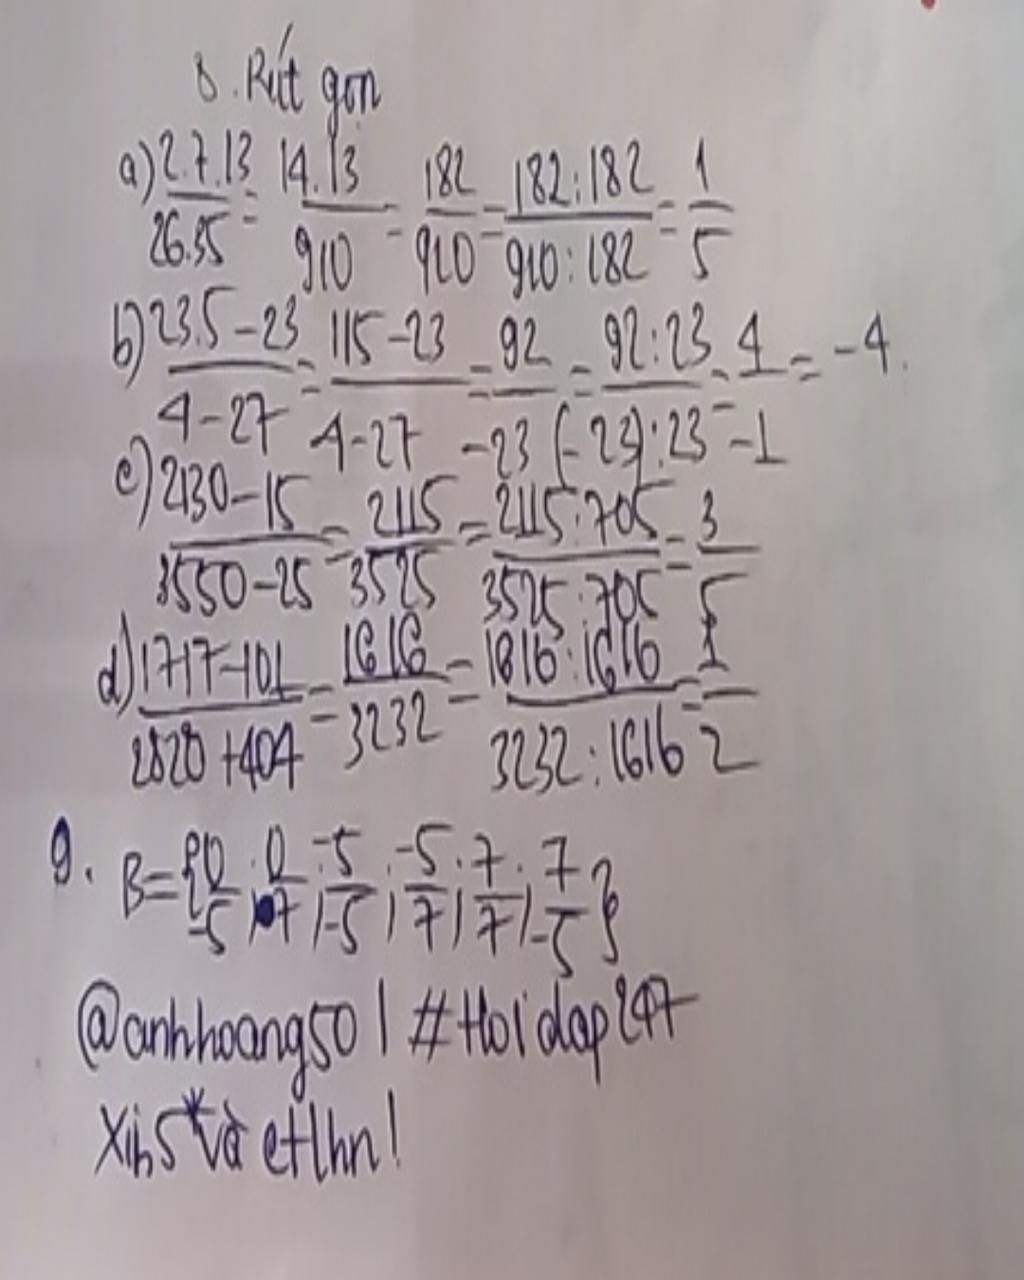 8. Rút gọn
a) 2.7.13/26.35 = 14.13/910 = 182/910 = 182:182/910:182 = 1/5
b) 23.5-23/4-27 = 115-23/4-27 = 92/-23 = 92:23/(-23):23 = 4/-1 = -4.
c) 2130-15/3550-25 = 2115/3525 = 2115:705/3525:705 = 3/5
d) 1717-101/2828+404 = 1616/3232 = 1616:1616/3232:1616 = 1/2
9. B = {0/-5; 0/7; -5/-5; -5/7; 7/7; 7/-5}
@anhhoang501 #Hoidap247
Xin 5* và ctlhn!